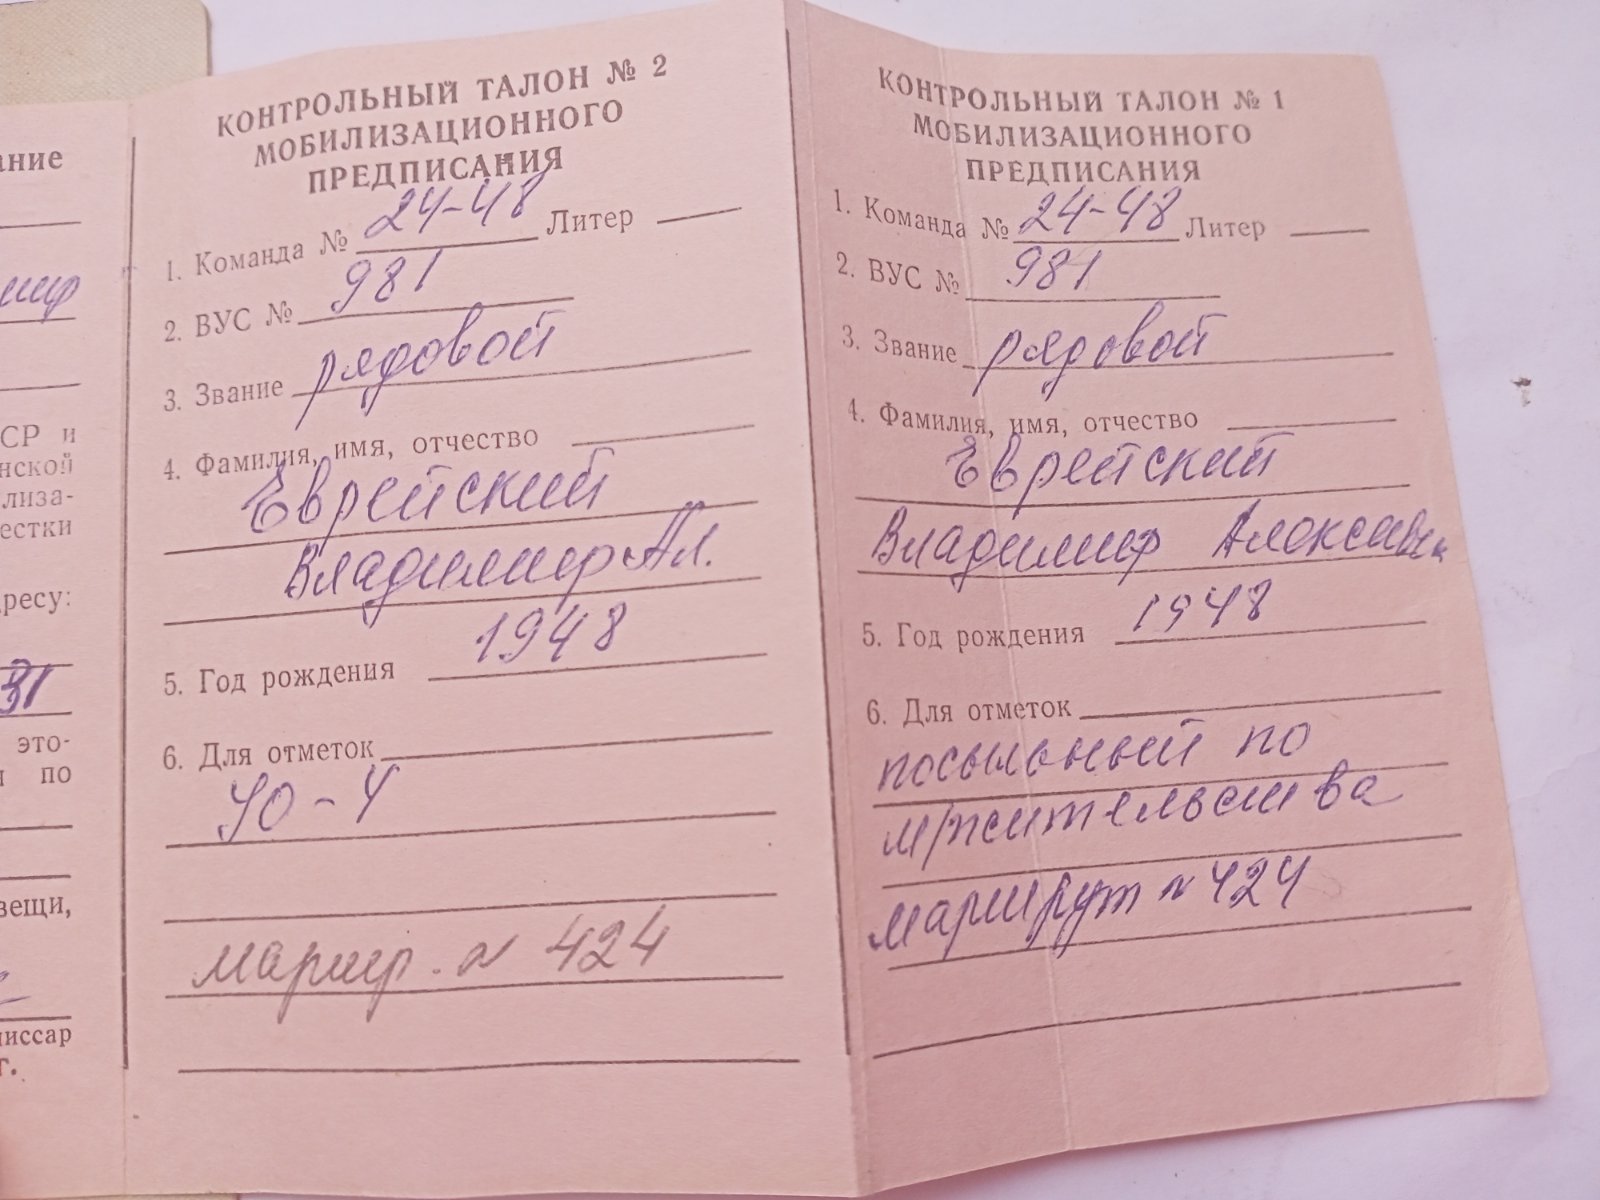 ание
мир
СР и
нской
лиза-
естки
дресу:
31
это-
и по
вещи,
миссар
г.
КОНТРОЛЬНЫЙ ТАЛОН № 2
МОБИЛИЗАЦИОННОГО
ПРЕДПИСАНИЯ
1. Команда № 24-48 Литер
2. ВУС № 981
3. Звание рядовой
4. Фамилия, имя, отчество
Еврейский
Владимир Ал.
5. Год рождения 1948
6. Для отметок
маршр. N 424
КОНТРОЛЬНЫЙ ТАЛОН № 1
МОБИЛИЗАЦИОННОГО
ПРЕДПИСАНИЯ
1. Команда № 24-48 Литер
2. ВУС № 981
3. Звание рядовой
4. Фамилия, имя, отчество
Еврейский
Владимир
5. Год рождения 1948
6. Для отметок
посыльный по
м/жительства
маршрут N 424